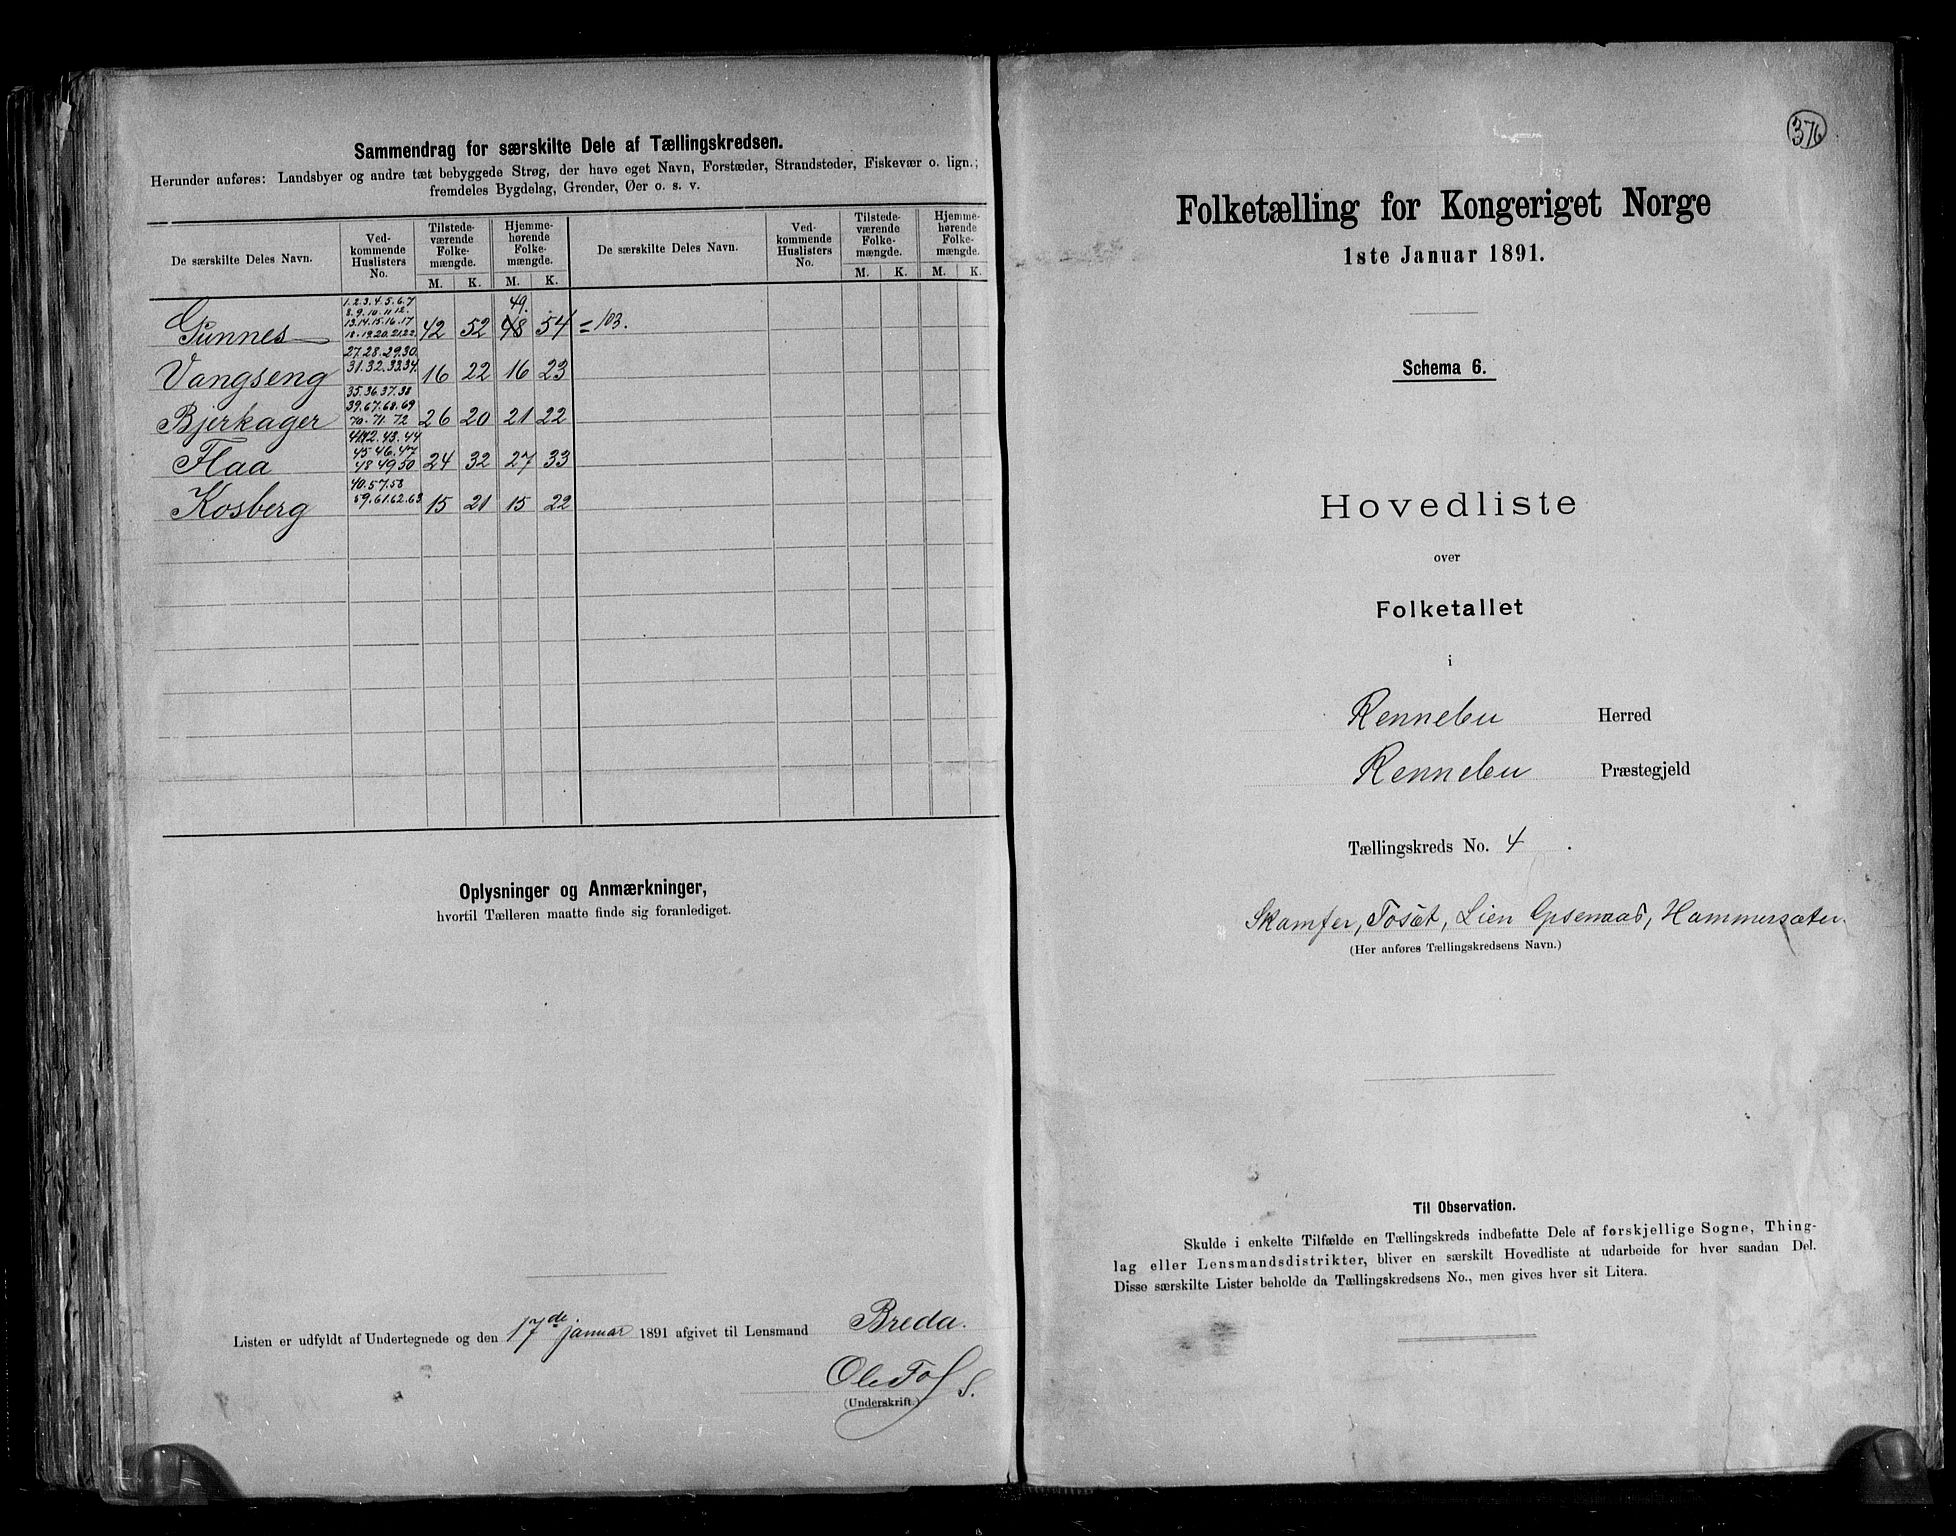 Sammendrag for særskilte Dele af Tællingskredsen.
Herunder anføres: Landsbyer og andre tæt bebyggede Strøg, der have eget Navn, Forstæder, Strandsteder, Fiskevær o. lign.;
fremdeles Bygdelag, Grender, Øer o. s. v.
De særskilte Deles Navn. Ved-kommende Huslisters No. Tilstede-værende Folke-mængde. Hjemme-hørende Folke-mængde. De særskilte Deles Navn. Ved-kommende Huslisters No. Tilstede-værende Folke-mængde. Hjemme-hørende Folke-mængde.
M. K. M. K. M. K. M. K.
1.2.3.4.5.6.7
8.9.10.11.12. 49.
13.14.15.16.17
Gunnes 18.19.20.21.22. 42 52 48 54 = 103.
27.28.29.30.
Vangseng 31.32.33.34. 16 22 16 23
35.36.37.38
39.67.68.69
Bjerkager 70.71.72 26 20 21 22
41.42.43.44
45.46.47
Flaa 48.49.50 24 32 27 33
40.57.58
Kosberg 59.61.62.63 15 21 15 22
Oplysninger og Anmærkninger,
hvortil Tælleren maatte finde sig foranlediget.
Listen er udfyldt af Undertegnede og den 17de januar 1891 afgivet til Lensmand Breda.
Ole
(Underskrift.)
376
Folketælling for Kongeriget Norge
1ste Januar 1891.
Schema 6.
Hovedliste
over
Folketallet
i
Rennebu Herred
Rennebu Præstegjeld
Tællingskreds No. 4.
Skamfer, Tosæt, Lien Gpsemaas, Hammersæter.
(Her anføres Tællingskredsens Navn.)
Til Observation.
Skulde i enkelte Tilfælde en Tællingskreds indbefatte Dele af forskjellige Sogne, Thing-
lag eller Lensmandsdistrikter, bliver en særskilt Hovedliste at udarbeide for hver saadan Del.
Disse særskilte Lister beholde da Tællingskredsens No., men gives hver sit Litera.